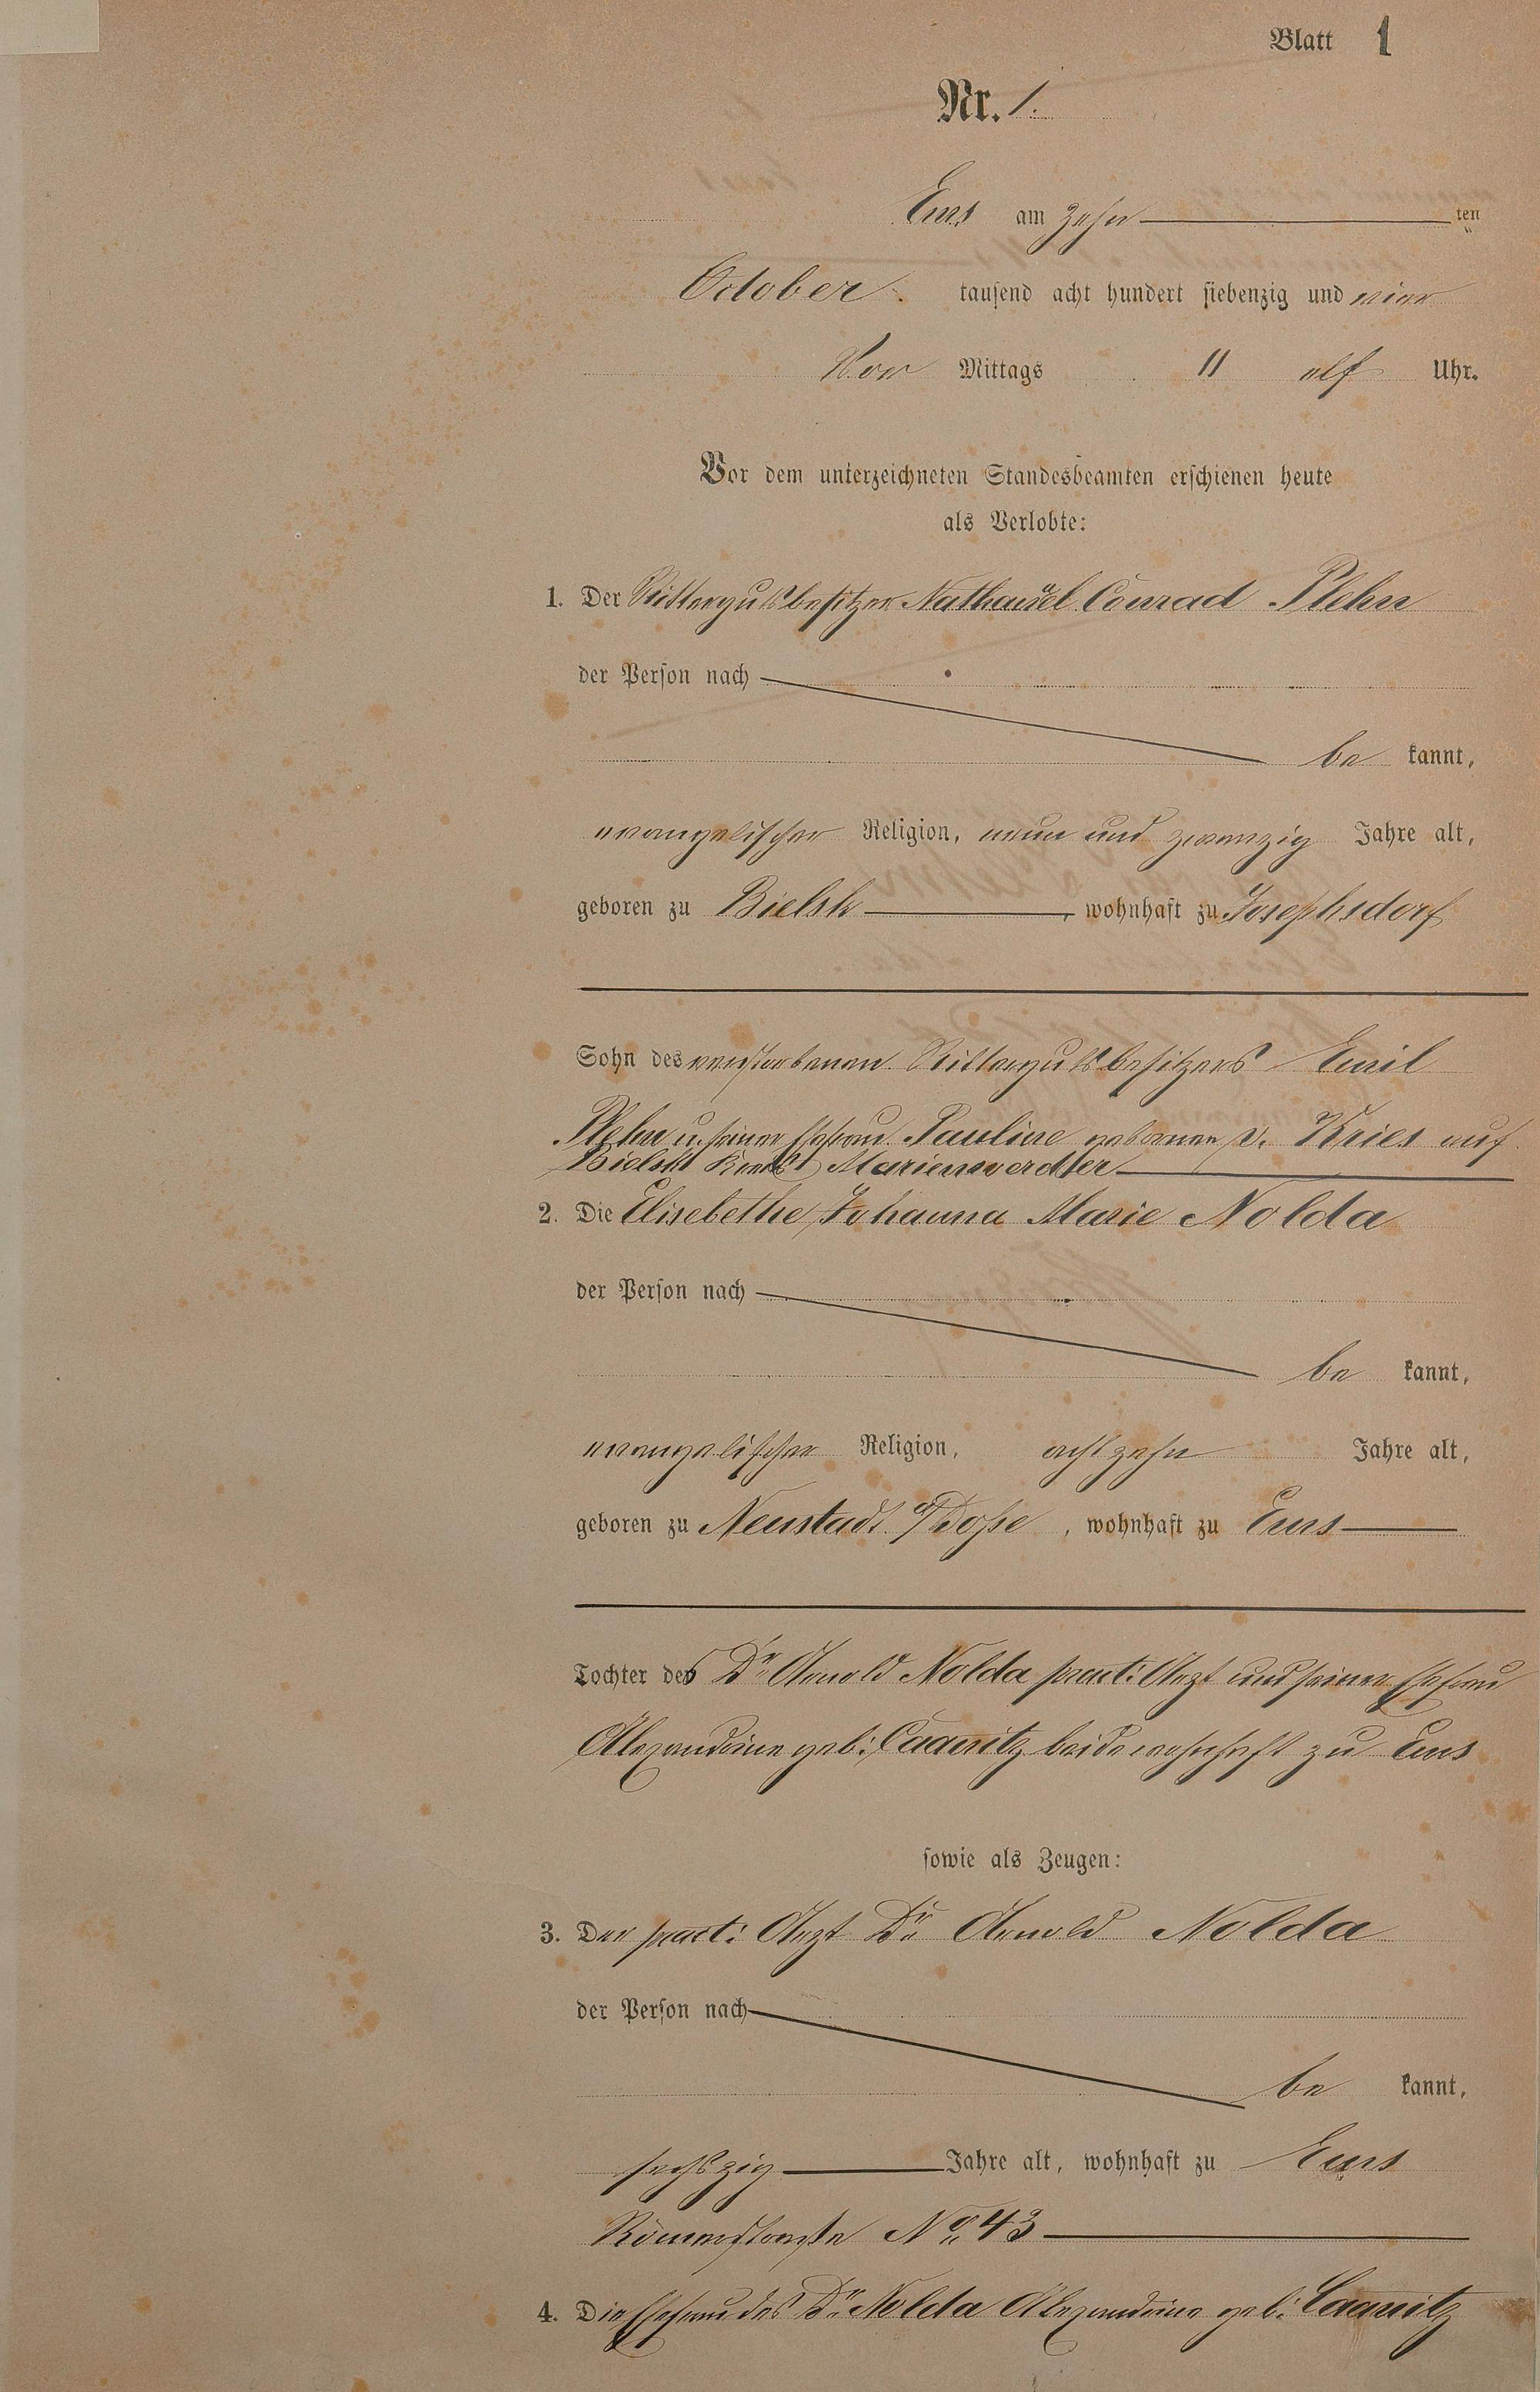 Blatt 1
Nr. 1.
Ems am zehn ten
October tausend acht hundert siebenzig und vier
Vor Mittags 11 elf Uhr.
Vor dem unterzeichneten Standesbeamten erschienen heute
als Verlobte:
1. Der Rittergutsbesitzer Nathanael Conrad Plehn
der Person nach
be kannt,
evangelischer Religion, neun und zwanzig Jahre alt,
geboren zu Bielsk, wohnhaft zu Josephsdorf
Sohn des verstorbenen Rittergutsbesitzers Emil
Plehn u. seiner Ehefrau Pauline gebornen v. Kries auf
Bielsk Kreis Marienwerder
2. Die Elisebethe Johanna Marie Nolda
der Person nach
be kannt,
evangelischer Religion, achtzehn Jahre alt,
geboren zu Neustadt a/Dosse, wohnhaft zu Ems
Tochter des Dr. Arnold Nolda pract: Arzt und seiner Ehefrau
Alexandrine geb: beide wohnhaft zu Ems
sowie als Zeugen:
3. Der pract: Arzt Dr. Arnold Nolda
der Person nach
be kannt,
sechszig Jahre alt, wohnhaft zu Ems
Römerstraße No. 43
4. Die Ehefrau des Dr. Nolda Alexandrine geb: